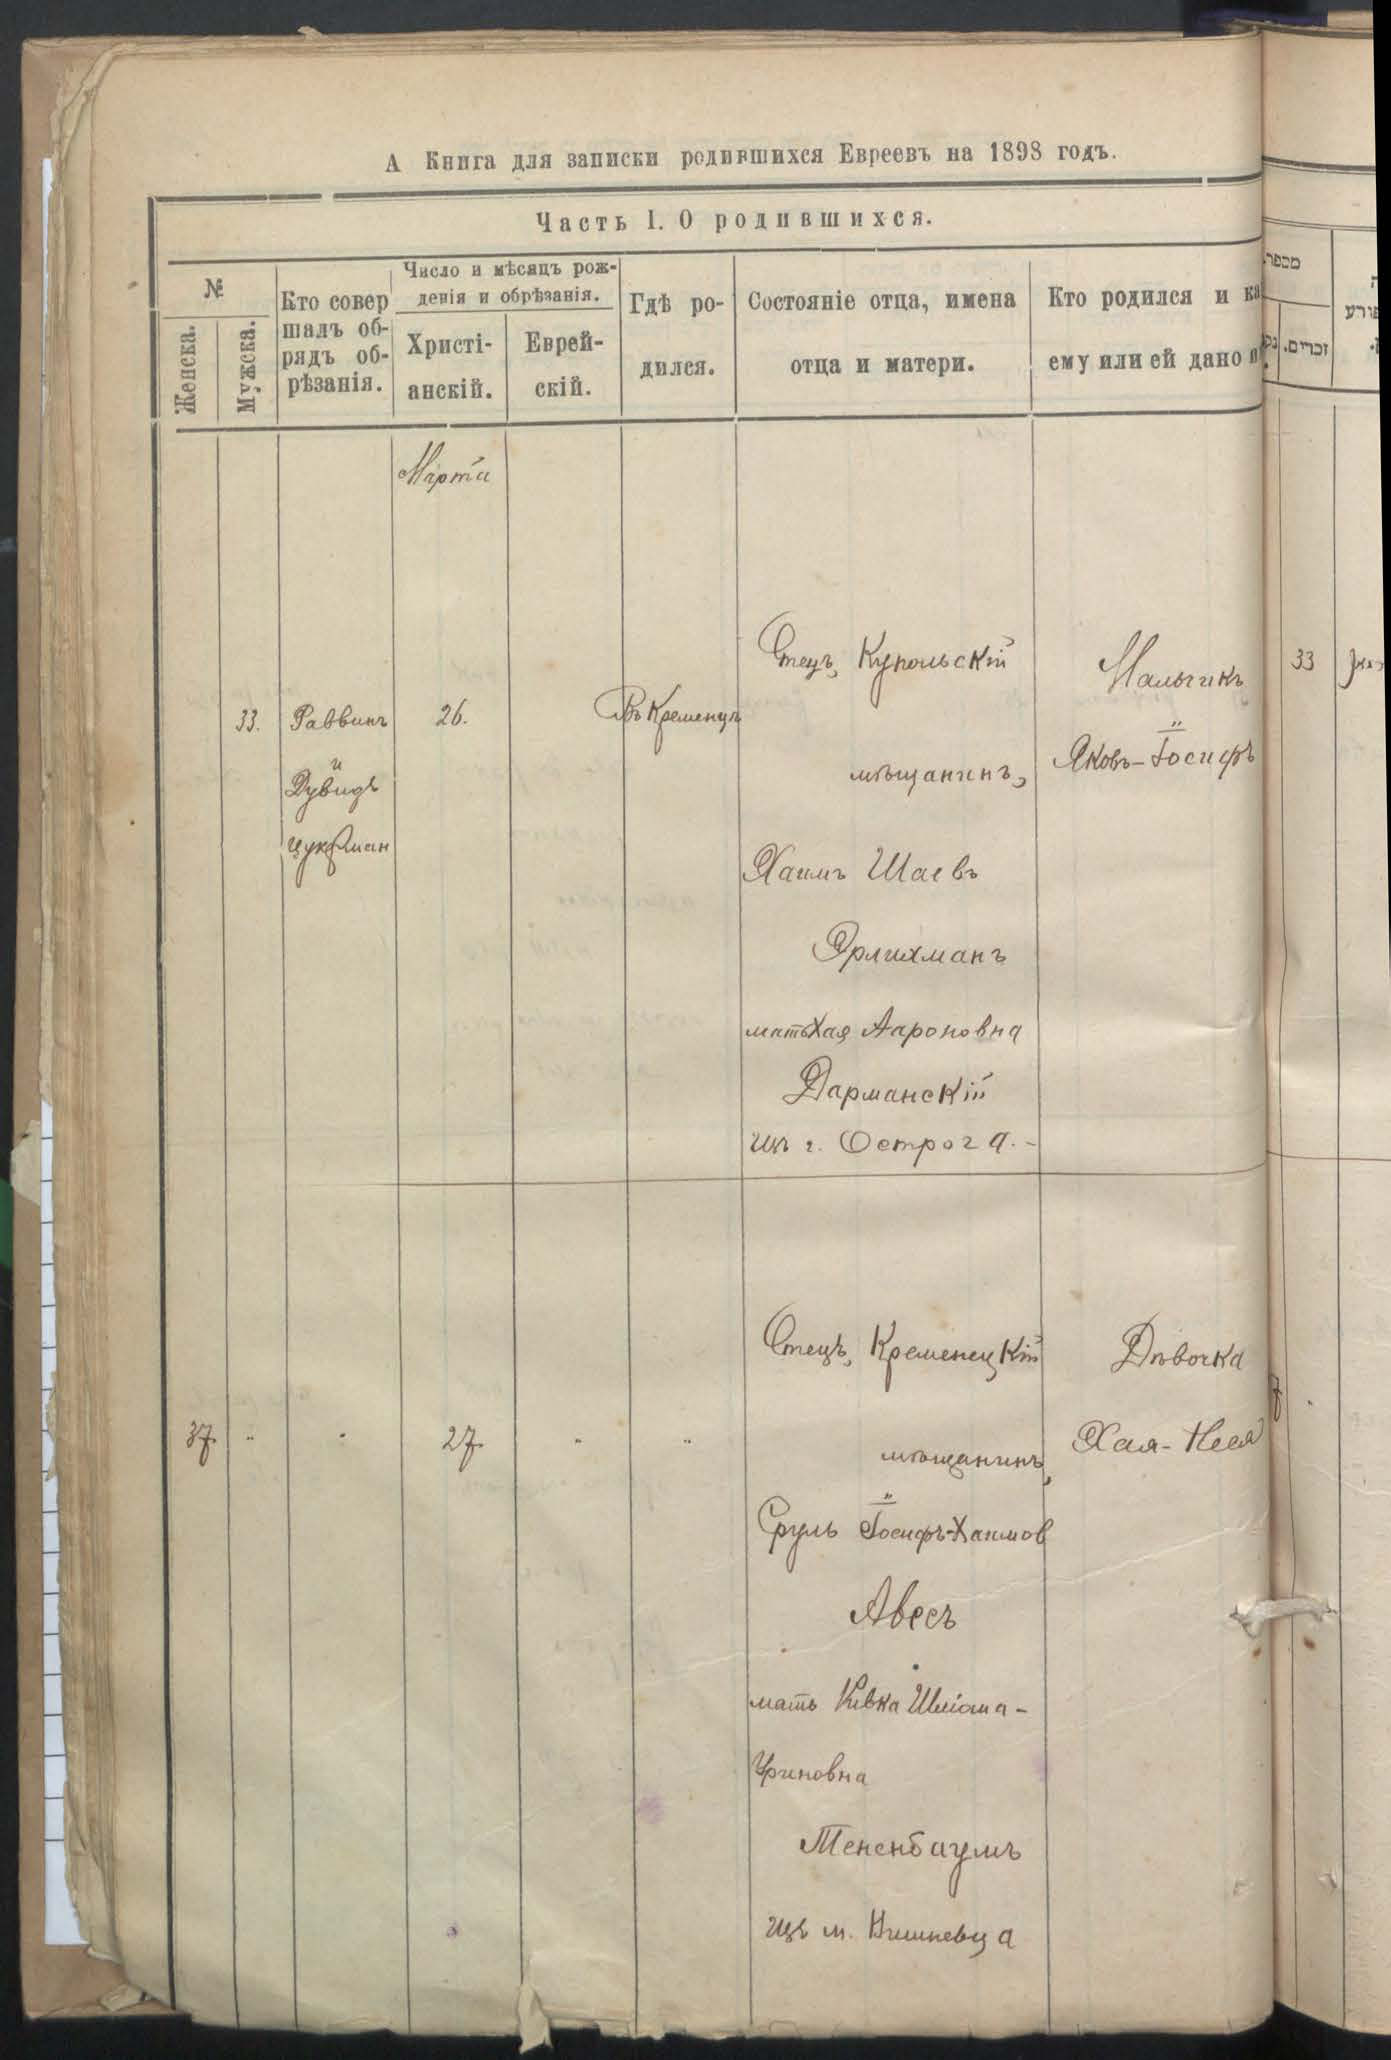 А Книга для записки родившихся Евреевъ на 1898 годъ.
Часть I. О родившихся.
№
Женска.
Мужска.
Кто совер
шалъ об-
рядъ об-
рѣзанія.
Число и мѣсяцъ рож-
денія и обрѣзанія.
Христі-
анскій.
Еврей-
скій.
Гдѣ ро-
дился.
Состояніе отца, имена
отца и матери.
Кто родился и ка
ему или ей дано и
מספר
זכרים.
Марта
33.
Раввинъ
и
Дувидъ
Цукерман
26.
Въ Кременцѣ
Отецъ, Купольскій
мѣщанинъ,
Хаимъ Шаевъ
Эрлихманъ
мать Хая Аароновна
Дарманскій
изъ г. Острога. -
Мальчикъ
Яковъ-Іосифъ
33
37
"
"
27
"
"
Отецъ, Кременецкій
мѣщанинъ,
Сруль Іосифъ-Хаимов
Авесъ
мать Ривка Шліома-
Уриновна
Тененбаумъ
изъ м. Вишневца
Дѣвочка
Хая-Неся
7